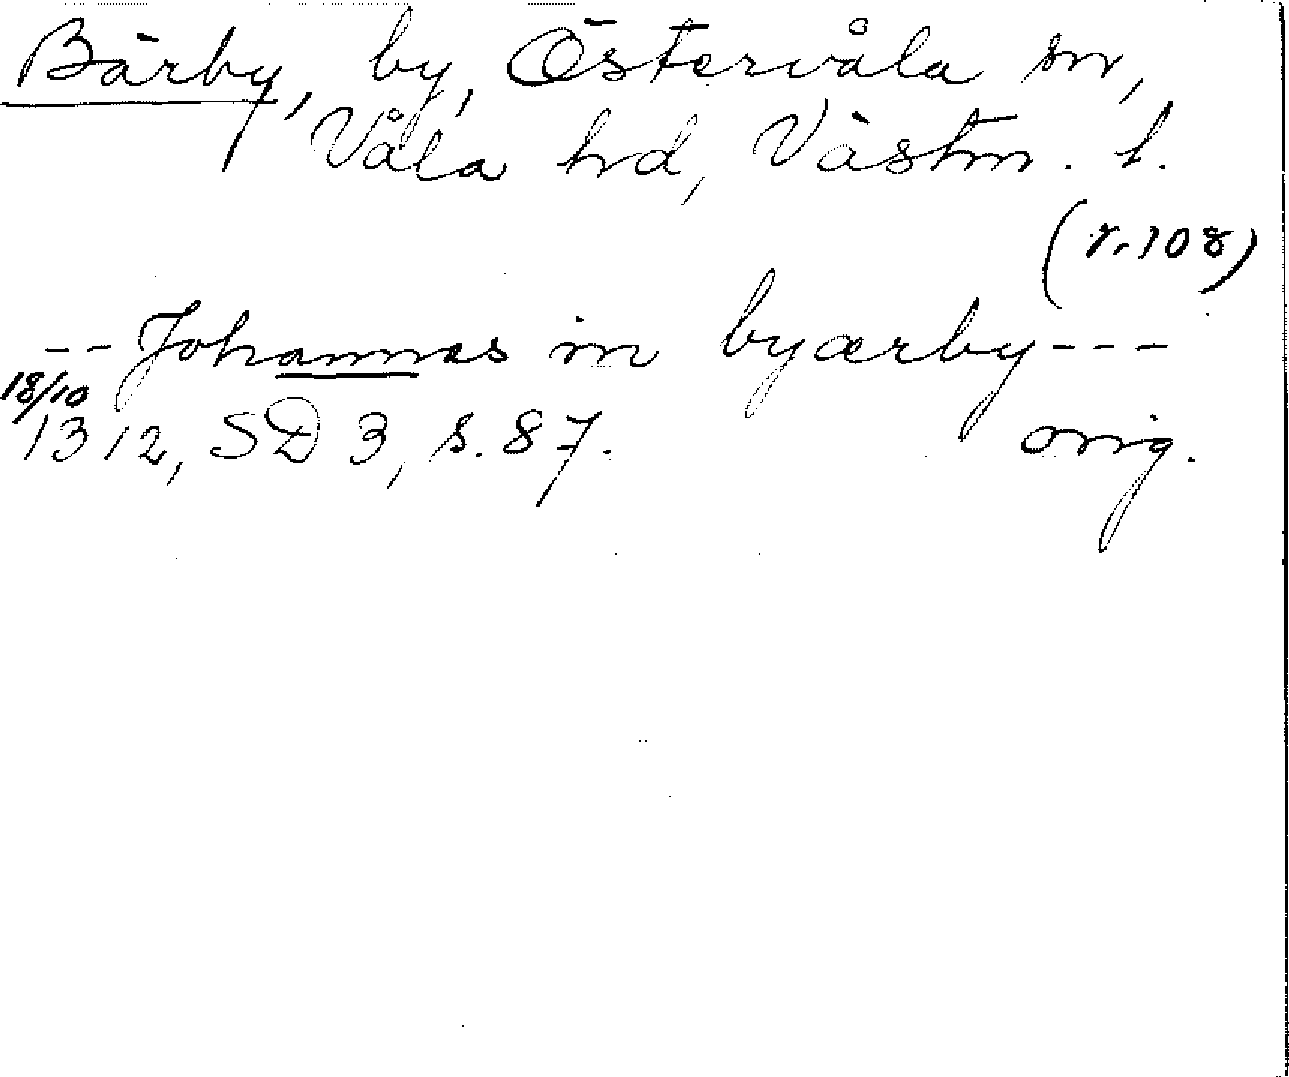 Bärby, by, Östervåla sn,
Våla hd, Västm. l.
(r. 108)
-- Johannas in byærby ---
18/10
1312, SD 3, s. 87. orig.